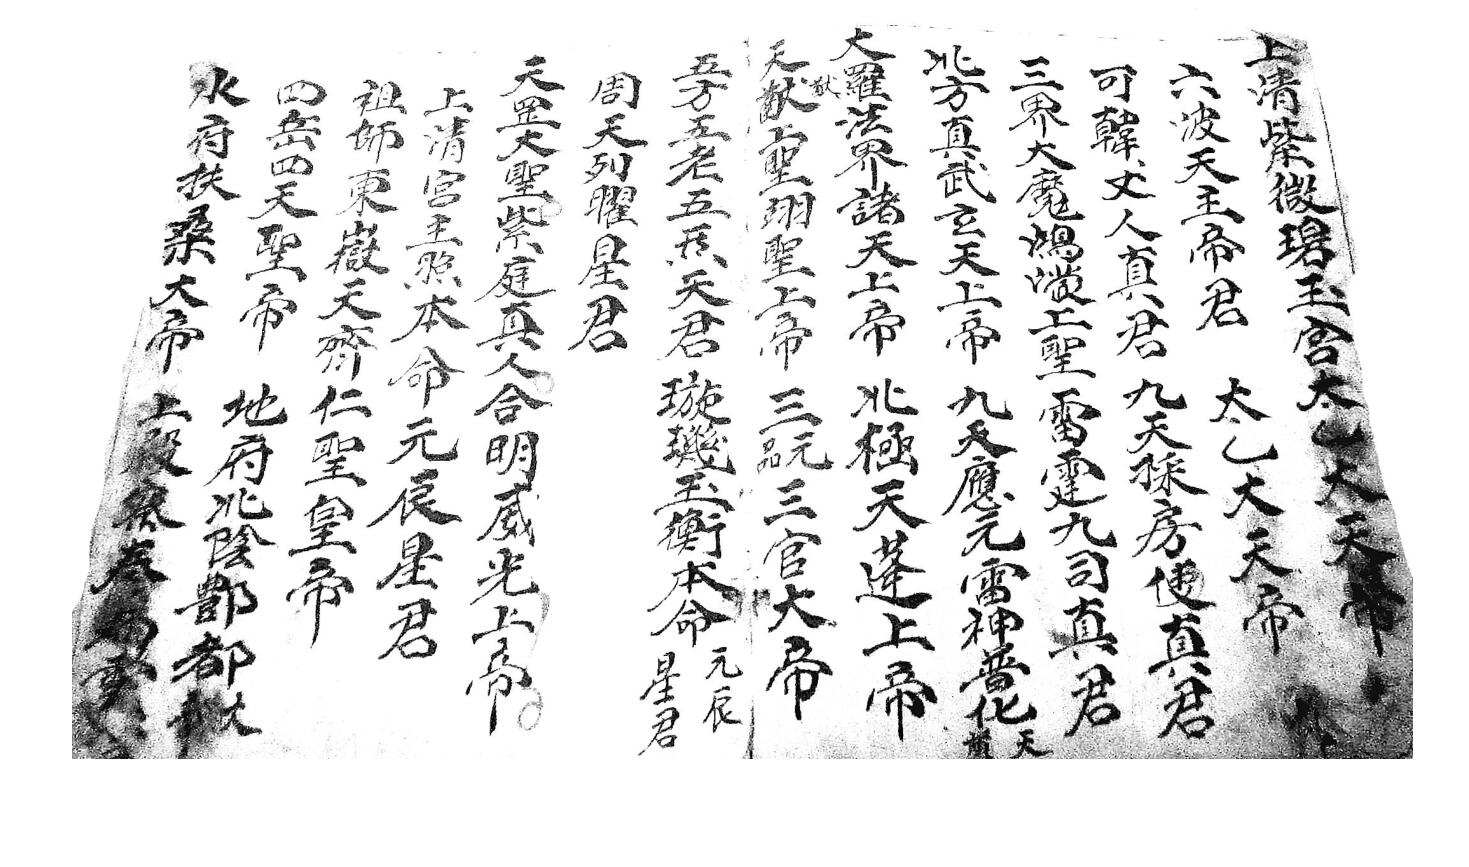 上清紫微碧玉宮太乙大天帝
六波天主帝君　太乙大天帝
可韓丈人真君　九天採房使真君
三界大魔鴻濛上聖　雷霆九司真君
北方真武玄天上帝　九天應元雷神普化天尊
大羅法界諸天上帝　北極天蓬上帝
天猷上聖翊聖上帝　三元三品三官大帝
五方五老五炁天君　璇璣玉衡本命元辰星君
周天列曜星君
天罡大聖紫庭真人合明威光上帝
上清宮主照本命元辰星君
祖師東嶽天齊仁聖皇帝
四岳四天聖帝　地府北陰酆都大帝
水府扶桑大帝　上殿